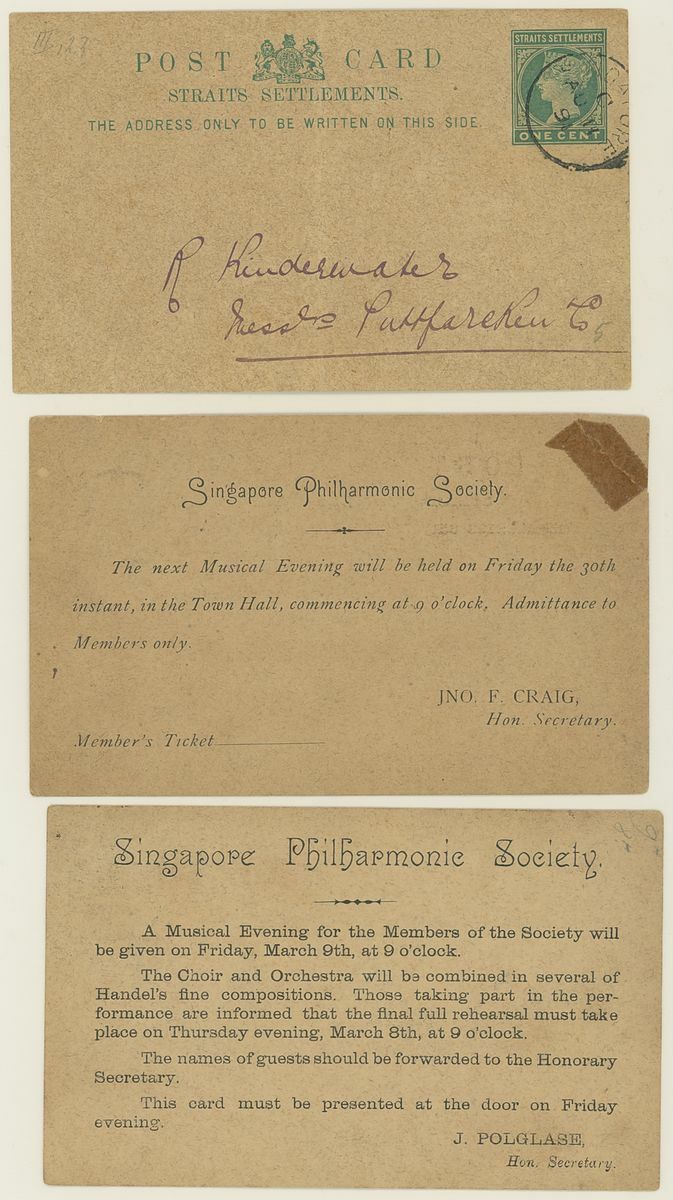 POST CARD
STRAITS SETTLEMENTS.
THE ADDRESS ONLY TO BE WRITTEN ON THIS SIDE.
STRAITS SETTLEMENTS
ONE CENT
R Kinderwater
Messrs Puttfarcken & Co
Singapore Philharmonic Society.
The next Musical Evening will be held on Friday the 30th
instant, in the Town Hall, commencing at 9 o'clock. Admittance to
Members only.
JNO. F. CRAIG,
Hon. Secretary.
Member's Ticket
Singapore Philharmonic Society.
A Musical Evening for the Members of the Society will
be given on Friday, March 9th, at 9 o'clock.
The Choir and Orchestra will be combined in several of
Handel's fine compositions. Those taking part in the per-
formance are informed that the final full rehearsal must take
place on Thursday evening, March 8th, at 9 o'clock.
The names of guests should be forwarded to the Honorary
Secretary.
This card must be presented at the door on Friday
evening.
J. POLGLASE,
Hon. Secretary.